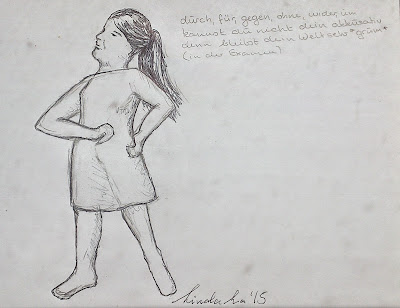 durch, für, gegen, ohne, wider, um
kannst du nicht dein akkusativ
dann bleibt dein Welt sehr "grün"
(in der Grammer).
Linda Ha '15